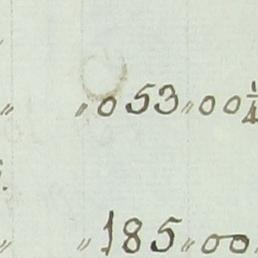 " " 053 " 00 1/4
" " 185 " 00